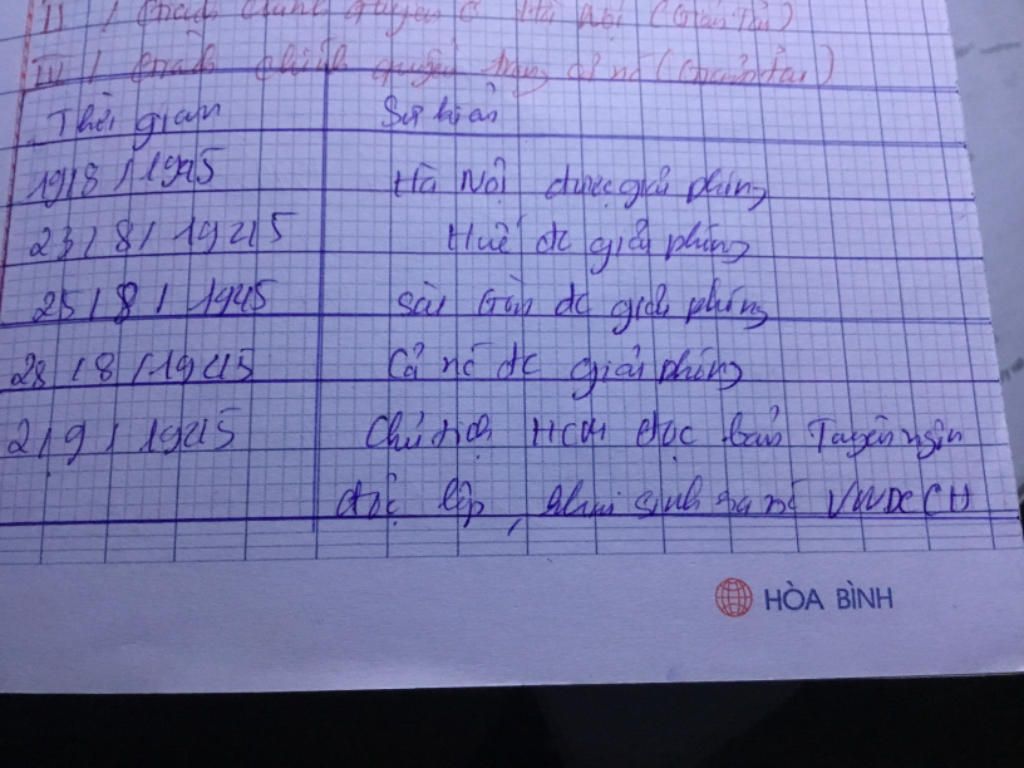 II / Giành chính quyền ở Hà Nội (Giảm Tải)
III / Giành chính quyền trong cả nc (Giảm tải)
Thời gian Sự kiện
19/8/1945 Hà Nội được giải phóng
23/8/1945 Huế đc giải phóng
25/8/1945 Sài Gòn đc giải phóng
28/8/1945 Cả nc đc giải phóng
2/9/1945 Chủ tịch HCM đọc bản Tuyên ngôn
độc lập, khai sinh ra nc VNDCCH
HÒA BÌNH